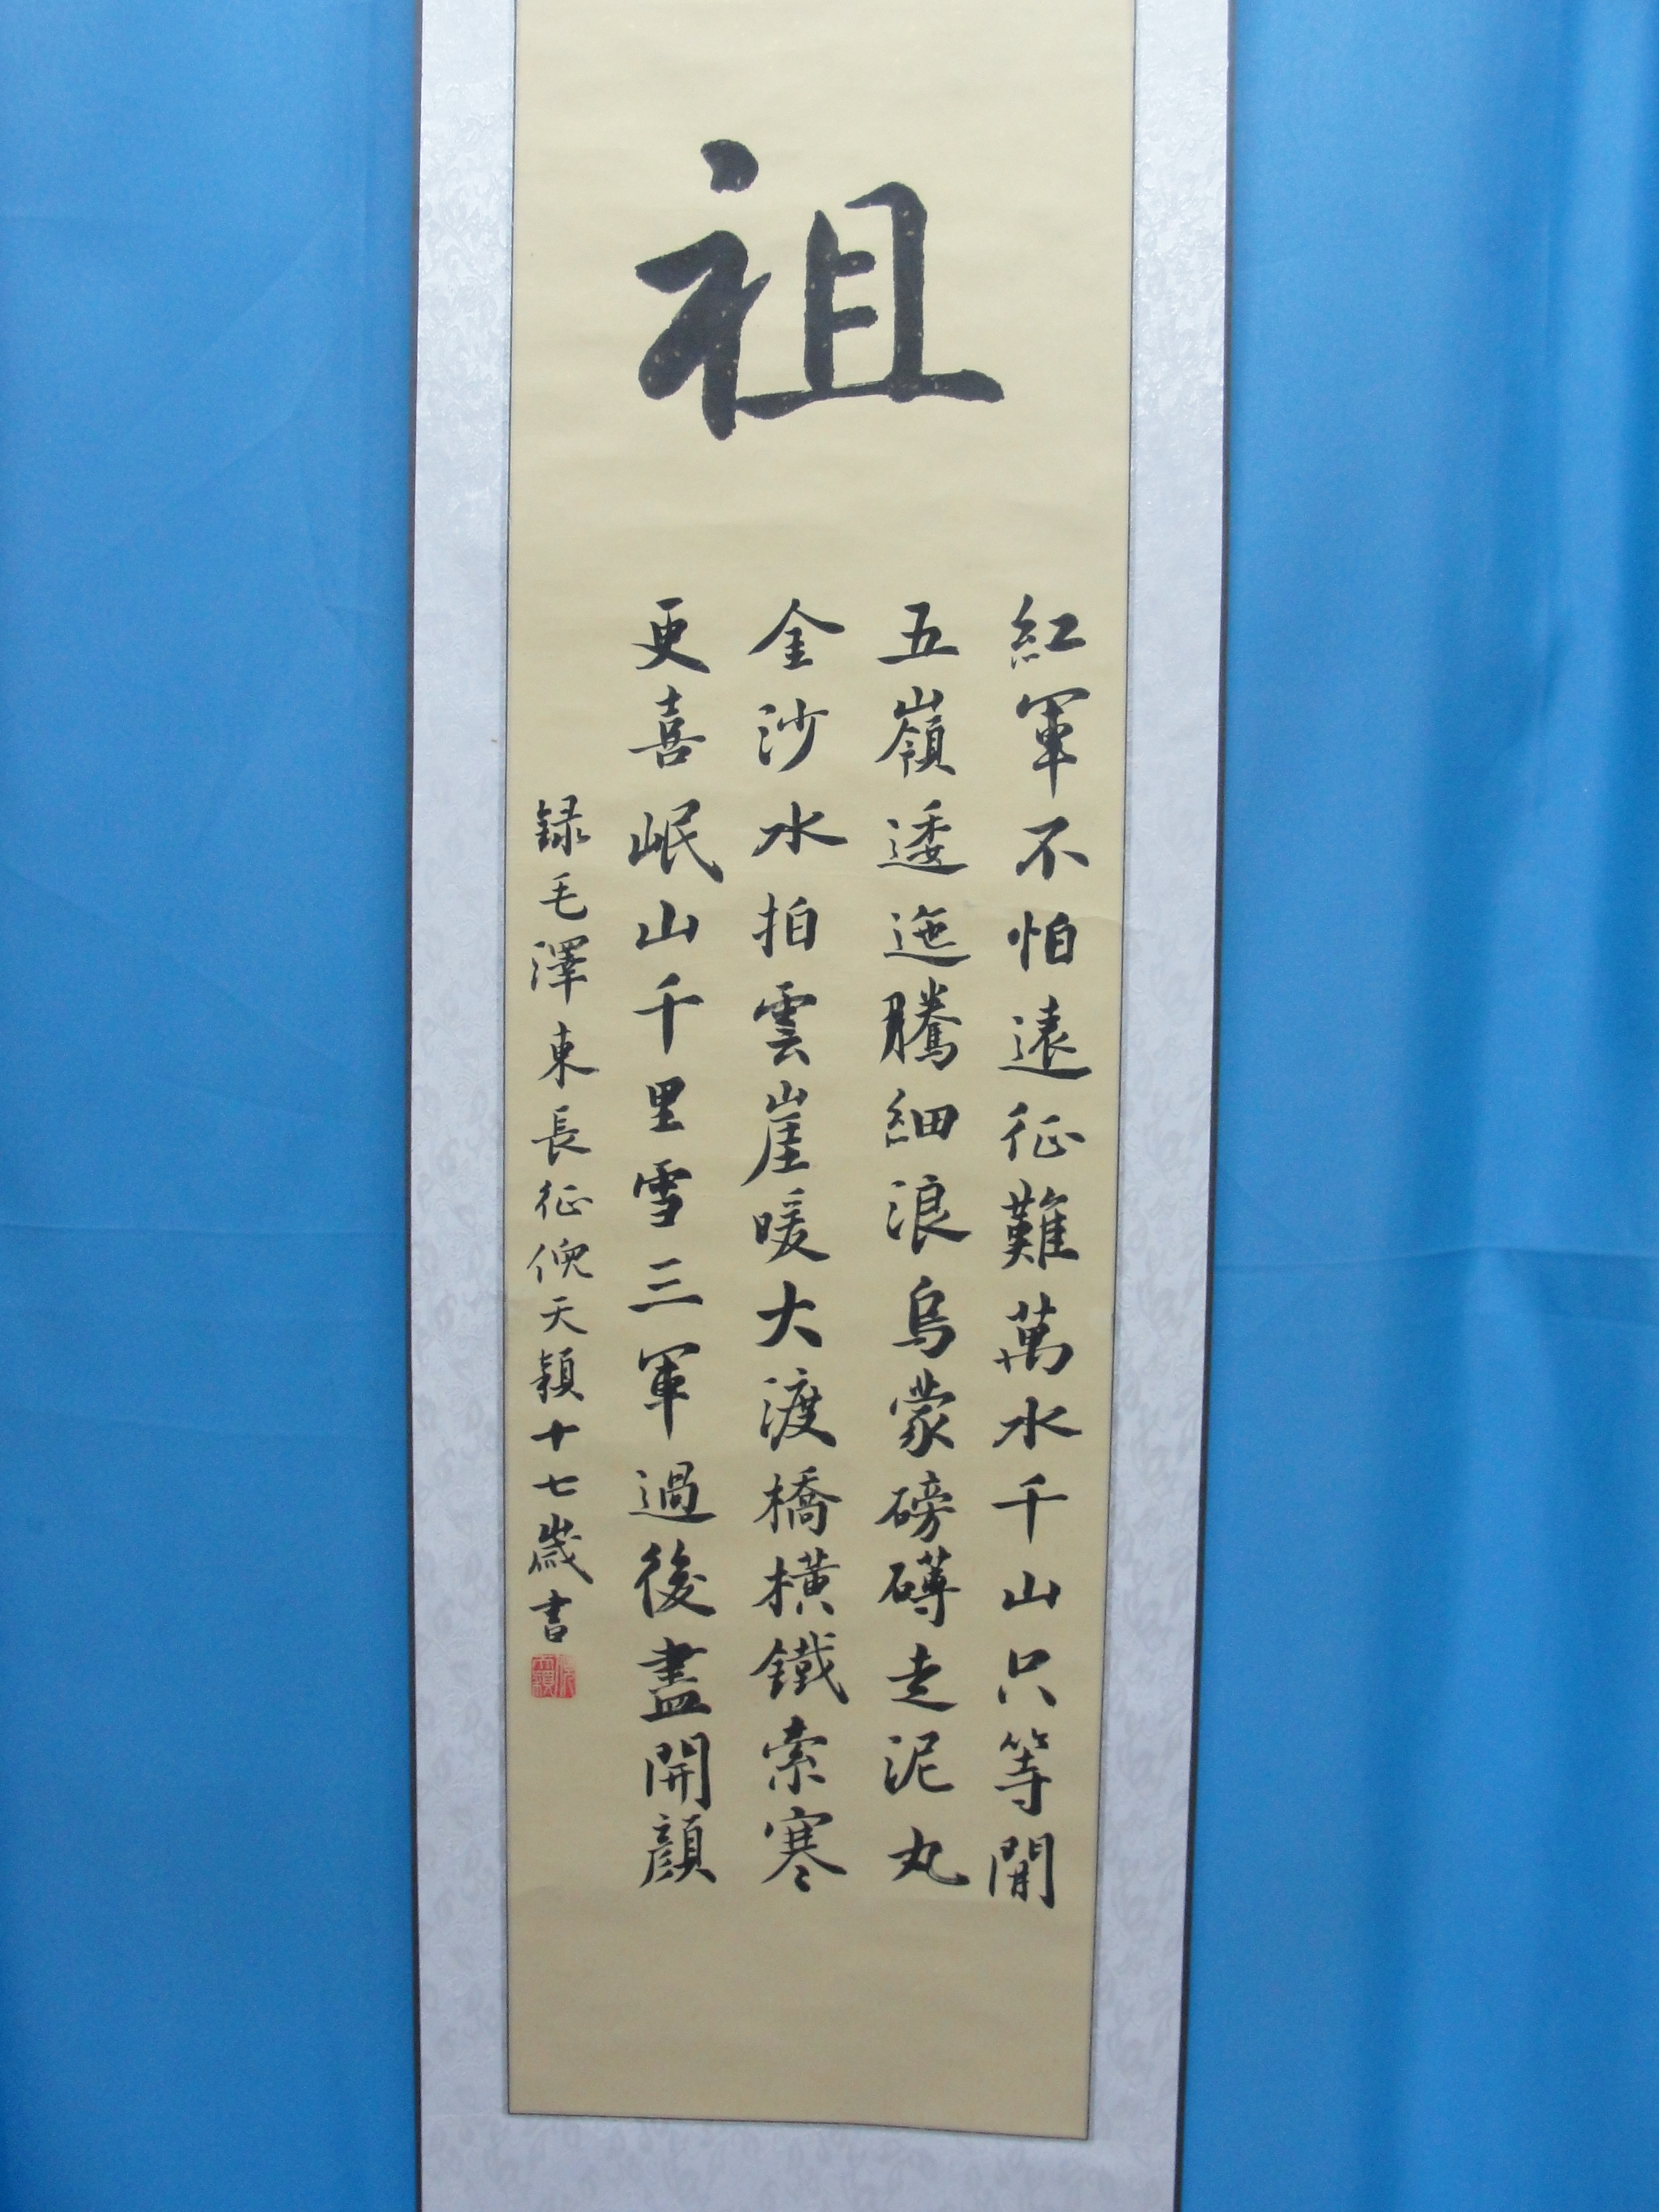 祖
紅軍不怕遠征難萬水千山只等閒
五嶺逶迤騰細浪烏蒙磅礴走泥丸
金沙水拍雲崖暖大渡橋橫鐵索寒
更喜岷山千里雪三軍過後盡開顏
録毛澤東長征倪天穎十七歲書